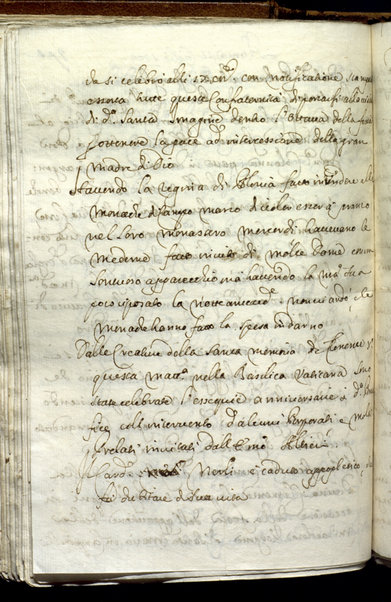 da si celebrò alli 17 Ott.e con notificatione
esorta tutte queste Confraternità di portarsi alla
di d.a Santa Imagine dentro l'Ottava della festa
p ottenere la pace ad intercessione della gran
Madre di Dio
Havendo la Regina di Polonia fatto intendere alle
Monache di Campo Marzo di voler essere à pranzo
nel loro Monastero Mercordì havevano le
medeme fatto invito di molte Dame con un
sontuoso apparecchio mà havendo la M.tà Sua
poco riposato la notte antecede e non vi andò e le
Monache hanno fatto la spesa indarno
Dalle Creature della Santa memoria di Clemente X
questa matt.a nella Basilica Vaticana sono
state celebrate l'essequie anniversarie
coll'intervento d'alcuni Porporati e molti
Prelati invitati dall'Em.o Altieri
Il Card. Nerli è caduto appopletico
di vita